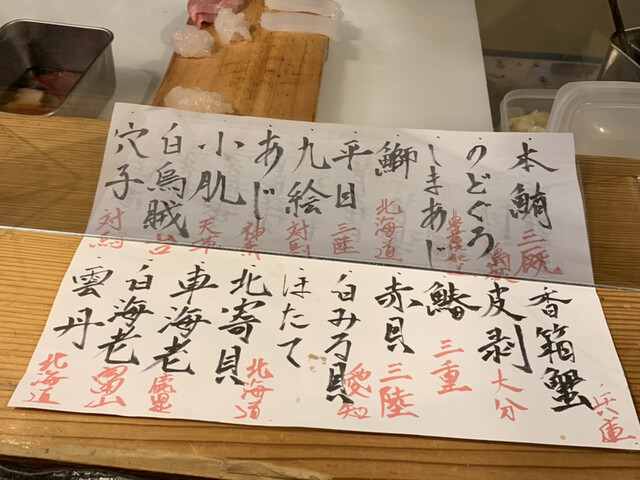 本鮪 三厩
のどぐろ
しまあじ
鰤 北海道
平目 三陸
九絵 対馬
あじ
小肌 天草
白烏賊
穴子 対馬
香箱蟹 兵庫
皮剥 大分
鰆 三重
赤貝 三陸
白みる貝 愛知
ほたて
北寄貝 北海道
車海老
白海老 富山
雲丹 北海道